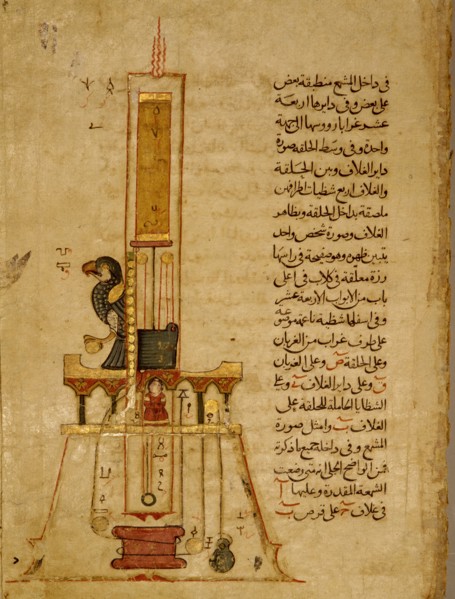 في داخل الشمع منطبقة بعض
على بعض وفي دايرها اربعة
عشر غرابا رووسها الى جهة
واحدة وفي وسط الحلقة صورة
داير الغلاف وبين الحلقة
والغلاف اربع شظيات اطرافهن
ملصقة بداخل الحلقة وبظاهر
الغلاف وصورة شخص واحد
وهو صفيحة في راسها
رزة معلقة في كلاب في اعلى
باب من الابواب الاربعة عشر
وفي اسفلها شظية ناعمة موضوعة
على طرف غراب من الغربان
وعلى الحلقة ص وعلى الغربان
وعلى داير الغلاف وعلى
الشظايا الحاملة للحلقة على
الغلاف وامثل صورة
الشمع وفي داخله جميع ما ذكرته
فمن الواضح الجلي انه متى وضعت
الشمعة المقدرة وعليها آ
في غلاف على قرص ب